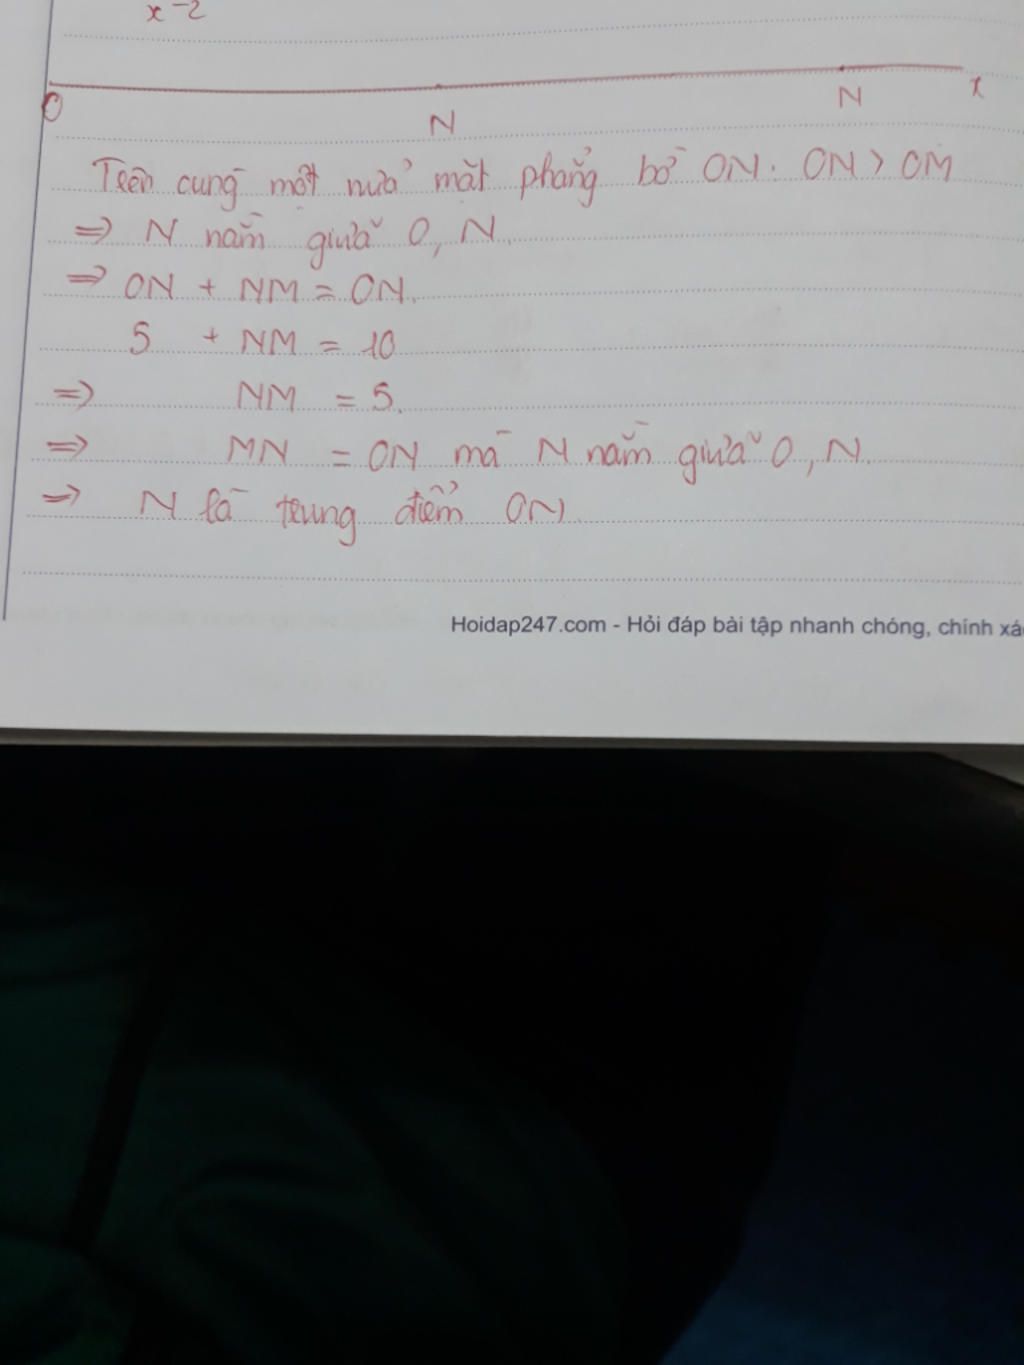 x -2
O N N x
Trên cùng một nửa mặt phẳng bờ ON: ON > OM
⇒ N nằm giữa O, N.
⇒ ON + NM = ON.
5 + NM = 10
⇒ NM = 5.
⇒ MN = ON mà N nằm giữa O, N.
⇒ N là trung điểm ON.
Hoidap247.com - Hỏi đáp bài tập nhanh chóng, chính xá